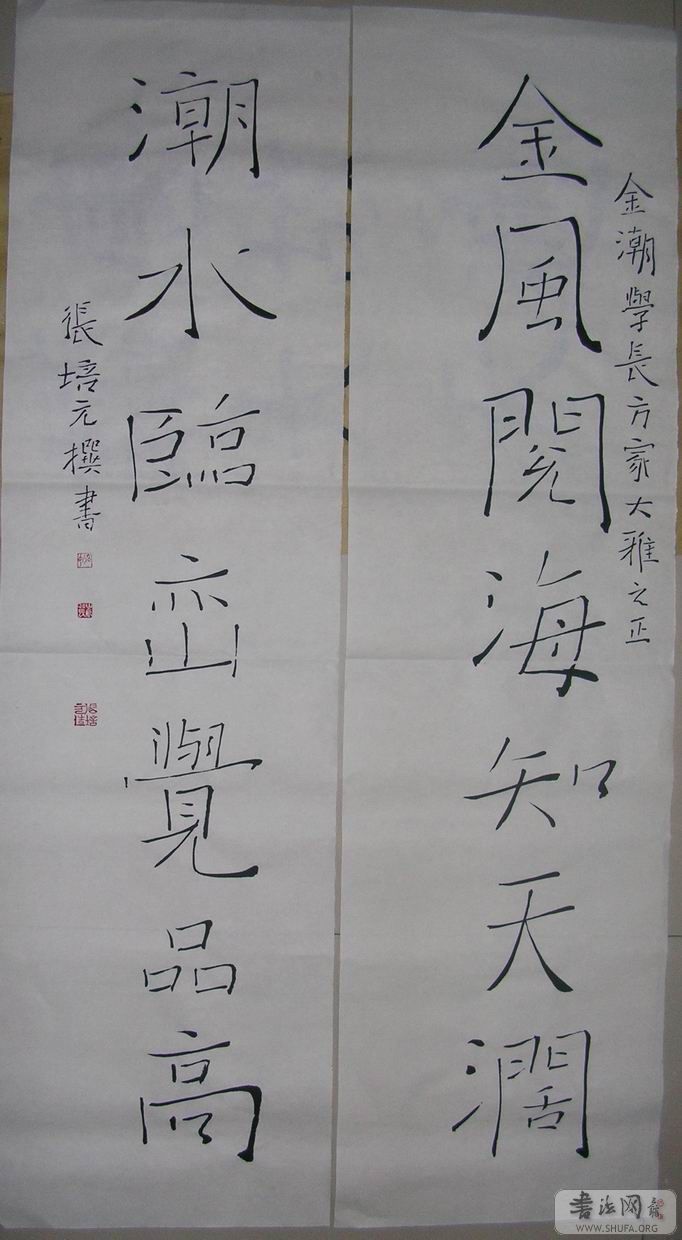 金潮學長方家大雅之正
金風閱海知天濶
潮水臨峦覺品高
張培元撰書
書法网
WWW.SHUFA.ORG